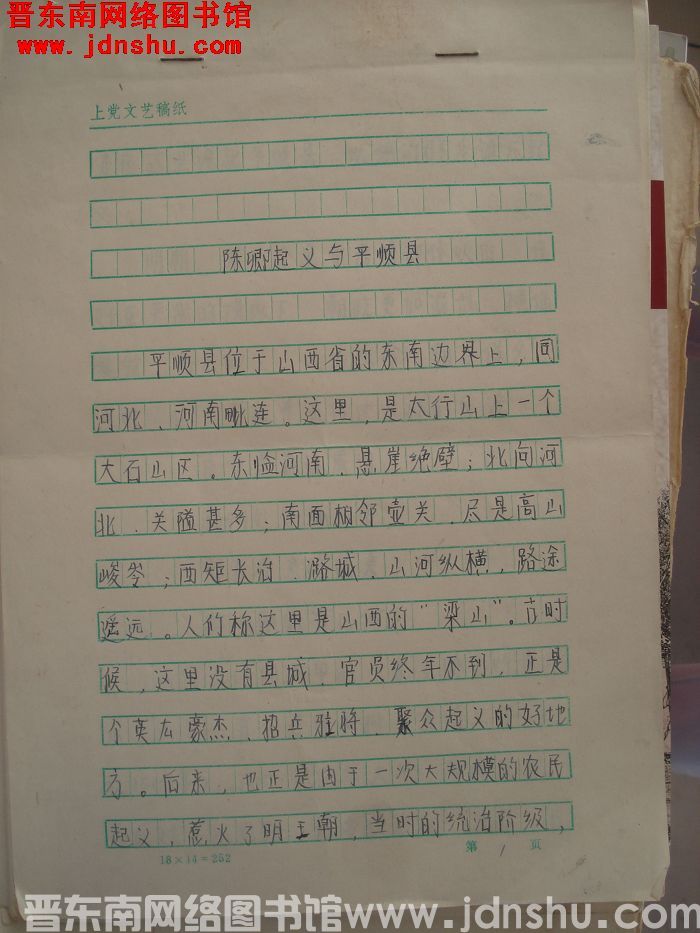 晋东南网络图书馆
www.jdnshu.com
上党文艺稿纸
陈卿起义与平顺县
平顺县位于山西省的东南边界上，同
河北、河南毗连。这里，是太行山上一个
大石山区。东临河南、悬崖绝壁；北向河
北、关隘甚多；南面相邻壶关、尽是高山
峻岺；西矩长治、潞城、山河纵横，路途
遥远。人们称这里是山西的“梁山”。古时
候，这里没有县城、官员终年不到，正是
个英厷豪杰、招兵雅将、聚众起义的好地
方。后来，也正是由于一次大规模的农民
起义，惹火了明王朝，当时的统治阶级，
18×14=252
第 1 页
晋东南网络图书馆www.jdnshu.com